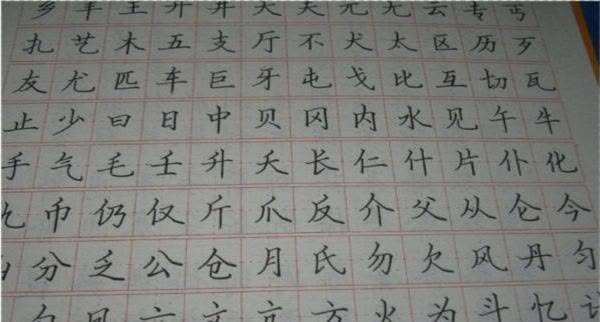 乡丰王开井天夫元无云专丐
扎艺木五支厅不犬太区历歹
友尤匹车巨牙屯戈比互切瓦
止少曰日中贝冈内水见午牛
手气毛壬升夭长仁什片仆化
币仍仅斤爪反介父从仑今
分乏公仓月氏勿欠风丹匀
方火为斗忆